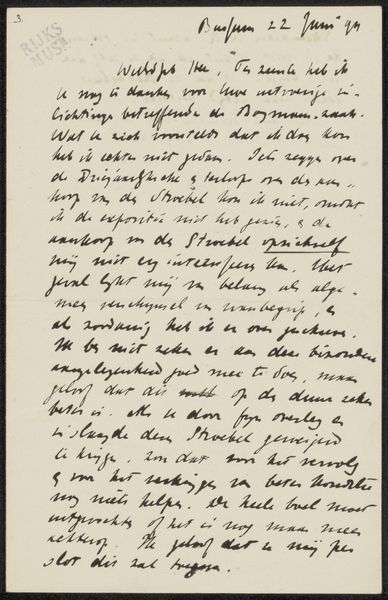 3.
RIJKS
MUS
Bussum 22 Juni 94
WelEd. Heer, Ten eerste heb ik
U nog te danken voor Uwe uitvoerige in-
lichtingen betreffende de Boymans-zaak.
Wat U zich voorstelt dat ik doen kon
heb ik echter niet gedaan. Iets zeggen over
de Driejaarlijksche & terloops over den aan-
koop van den Stroebel kon ik niet, omdat
ik de expositie niet heb gezien, & de
aankoop van den Stroebel opzichzelf
mij niet erg interesseeren kan. Het
geval lijkt mij van belang als alge-
meen verschijnsel van wanbegrip, &
als zoodanig heb ik er over geschreven.
Ik ben niet zeker er aan deze bizondere
aangelegenheid goed mee te doen, maar
geloof dat dit op den duur zeker
beter is. Als U door fijn overleg er
in slaagde dezen Stroebel geweigerd
te krijgen, zou dat voor het vervolg
& voor het verkrijgen van beter
nog niets helpen. De heele boel moet
uitgevochten of het is nog maar meer
achterop. Ik geloof dat U mij per
slot dit zal toegeven.